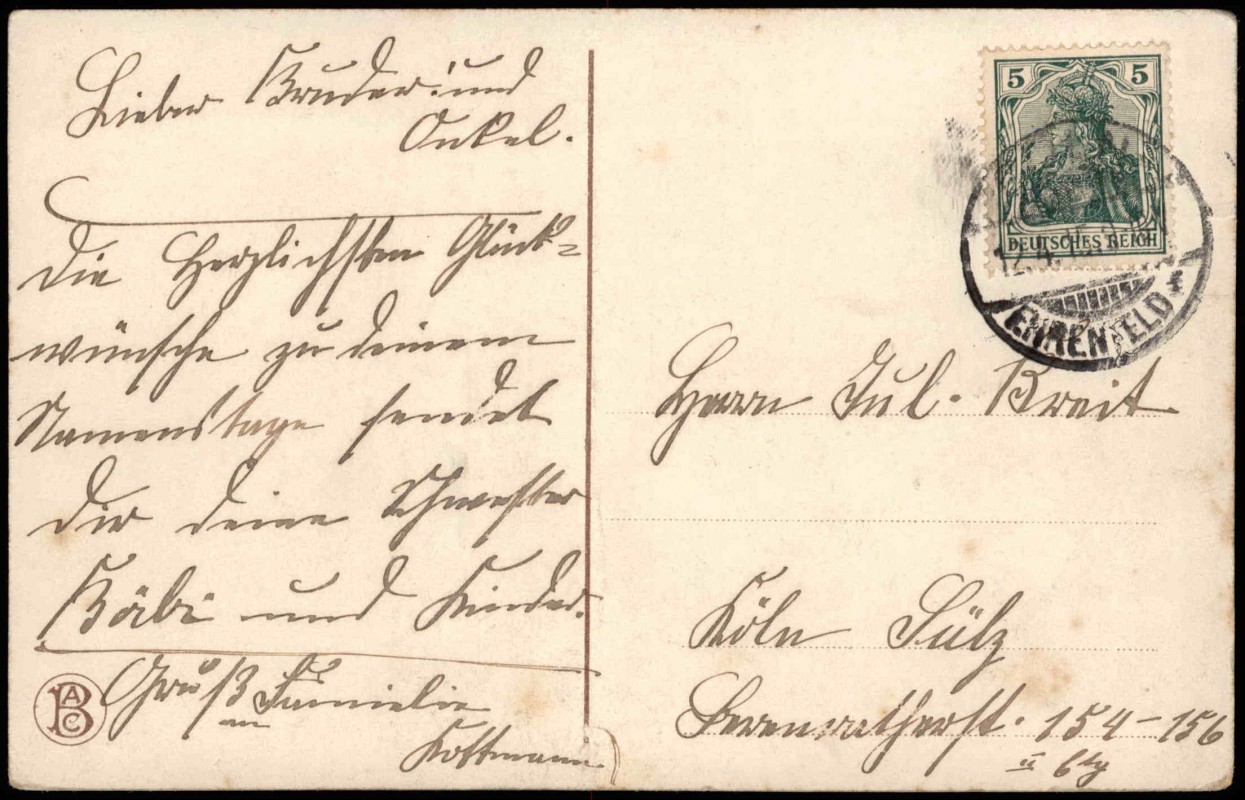 Lieber Bruder und
Onkel.
Die Herzlichsten Glück=
wünsche zu deinem
Namenstage sendet
Dir deine Schwester
Bäbi und Kinder.
Gruß Familie
an
Kottmann
BAC
5 5
DEUTSCHES REICH
12.4.
EHRENFELD *
Herrn Jul. Breit
Köln Sülz
Berenratherst. 154-156